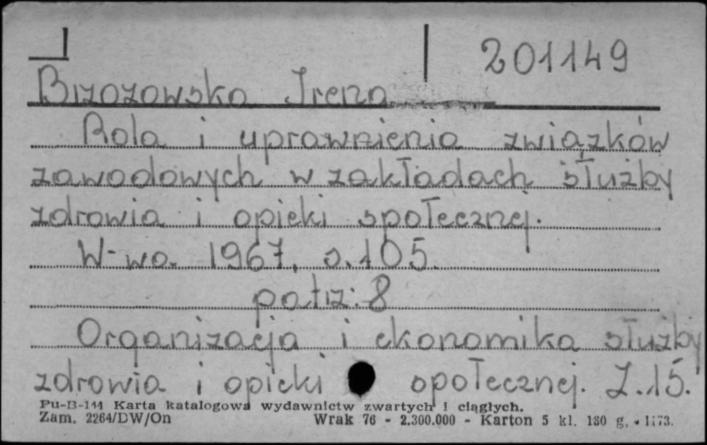 201149
Brzozowska Irena
Rola i uprawnienia związków
zawodowych w zakładach służby
zdrowia i opieki społecznej.
W-wa. 1967, s. 105.
patrz: 8
Organizacja i ekonomika służby
zdrowia i opieki społecznej. Z. 15.
Pu-B-144 Karta katalogowa wydawnictw zwartych i ciągłych.
Zam. 2264/DW/On Wrak 76 - 2.300.000 - Karton 5 kl. 180 g.